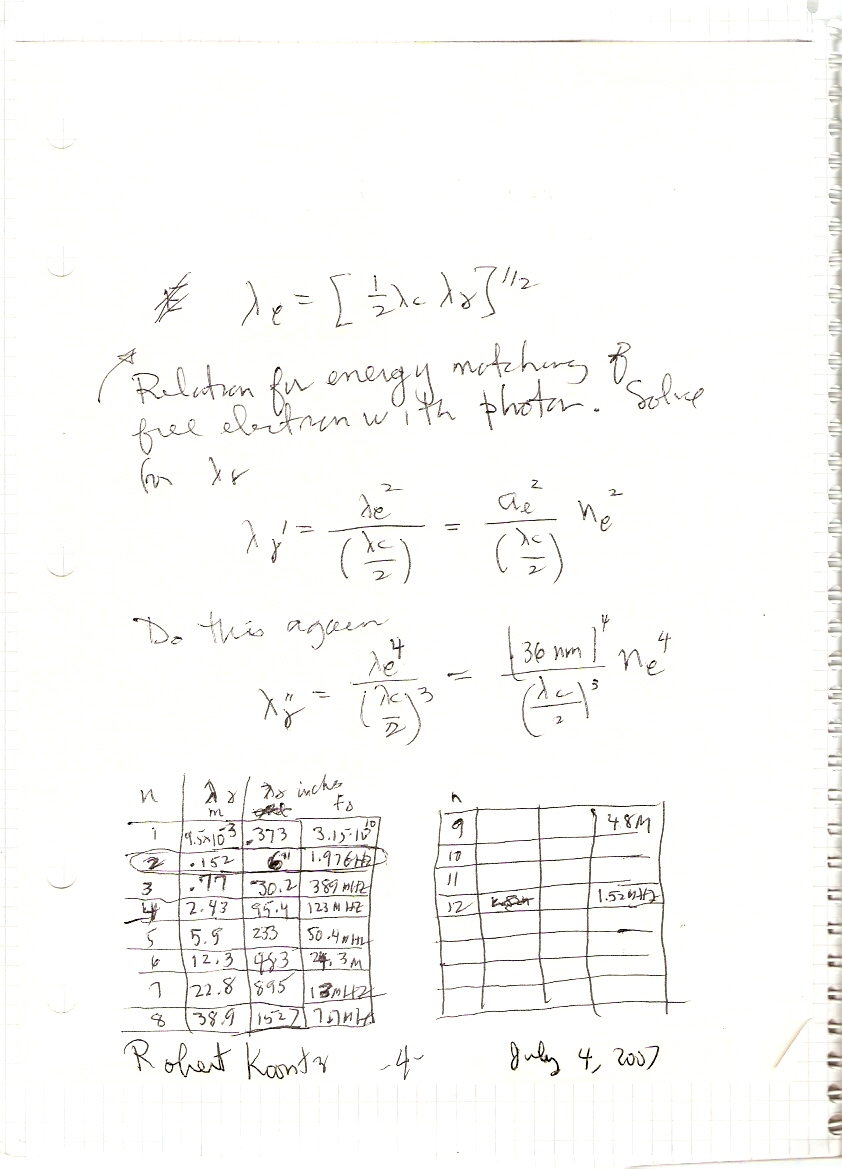 λe = [ 1/2 λc λγ ]^1/2
Relation for energy matching of
free electron with photon. Solve
for λγ
λγ' = λe^2 / (λc/2) = ae^2 / (λc/2) ne^2
Do this again
λγ" = λe^4 / (λc/2)^3 = [36 nm]^4 / (λc/2)^3 ne^4
n | λγ m | λγ inches | Fγ
1 | 9.5×10^-3 | .373 | 3.15·10^10
2 | .152 | 6" | 1.97GHZ
3 | .77 | 30.2 | 389 MHZ
4 | 2.43 | 95.4 | 123 MHZ
5 | 5.9 | 233 | 50.4 MHZ
6 | 12.3 | 483 | 24.3M
7 | 22.8 | 895 | 13MHZ
8 | 38.9 | 1527 | 7.7MHZ
n
9 | 4.8M
10
11
12 | 1.52MHZ
Robert Koontz -4- July 4, 2007